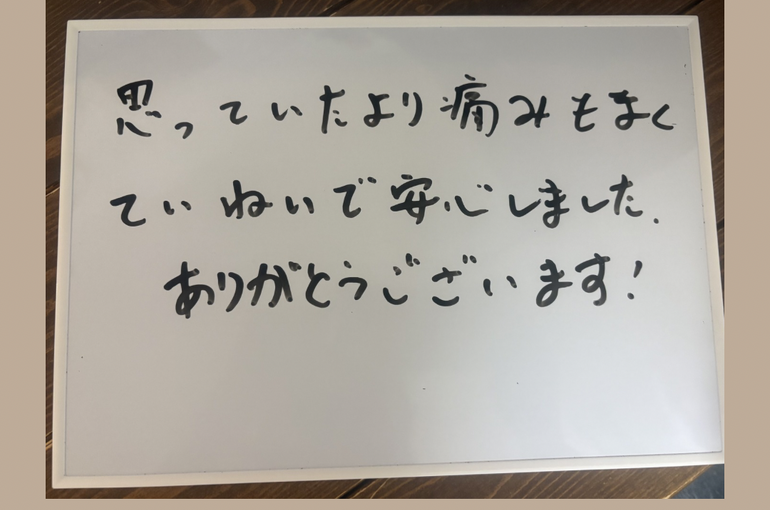 思っていたより痛みもまく
ていねいで安心しました.
ありがとうございます!